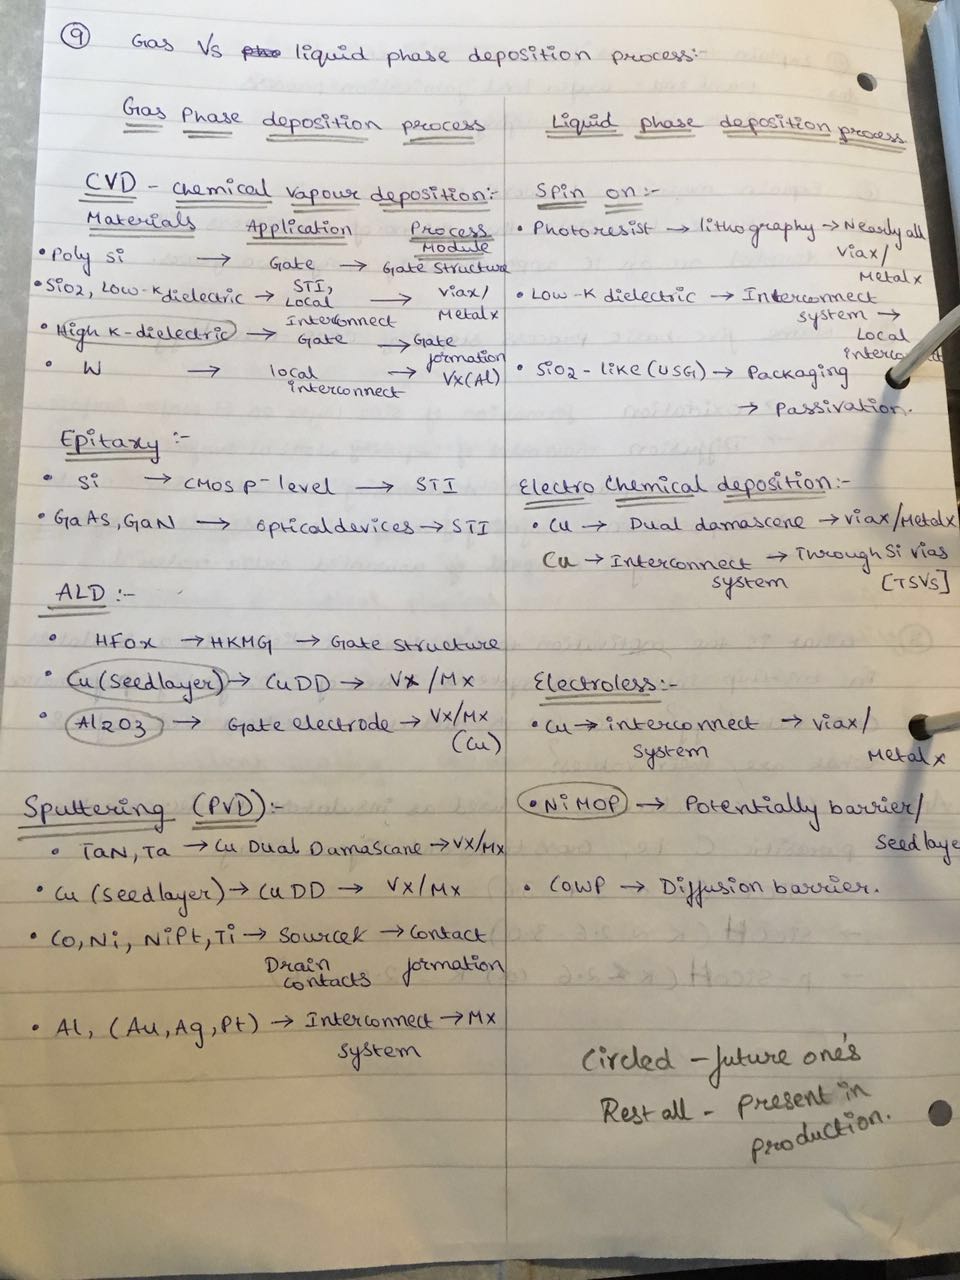 9 Gas Vs liquid phase deposition process:-
Gas Phase deposition process
CVD - Chemical Vapour deposition:-
Materials Application Process Module
• Poly Si → Gate → Gate Structure
• SiO2, Low-K dielectric → STI, Local Interconnect → Viax/ Metalx
• High K-dielectric → Gate → Gate formation
• W → local interconnect → Vx(Al)
Epitaxy :-
• Si → CMOS P-level → STI
• GaAs, GaN → Optical devices → STI
ALD :-
• HfOx → HKMG → Gate Structure
• Cu (Seedlayer) → Cu DD → Vx/Mx
• Al2O3 → Gate electrode → Vx/Mx (Cu)
Sputtering (PVD):-
• TaN, Ta → Cu Dual Damascane → Vx/Mx
• Cu (Seedlayer) → Cu DD → Vx/Mx
• Co, Ni, NiPt, Ti → Source& Drain contacts → Contact formation
• Al, (Au, Ag, Pt) → Interconnect System → Mx
Liquid phase deposition process
Spin on :-
• Photoresist → lithography → Nearly all Viax/ Metalx
• Low-K dielectric → Interconnect system → Local
• SiO2-like (USG) → Packaging
→ Passivation.
Electro Chemical deposition:-
• Cu → Dual damascene → Viax/Metalx
Cu → Interconnect system → Through Si vias [TSVs]
Electroless:-
• Cu → interconnect system → viax/ Metalx
• NiMOP → Potentially barrier/ Seedlaye
• COWP → Diffusion barrier.
Circled - future one's
Rest all - Present in
production.